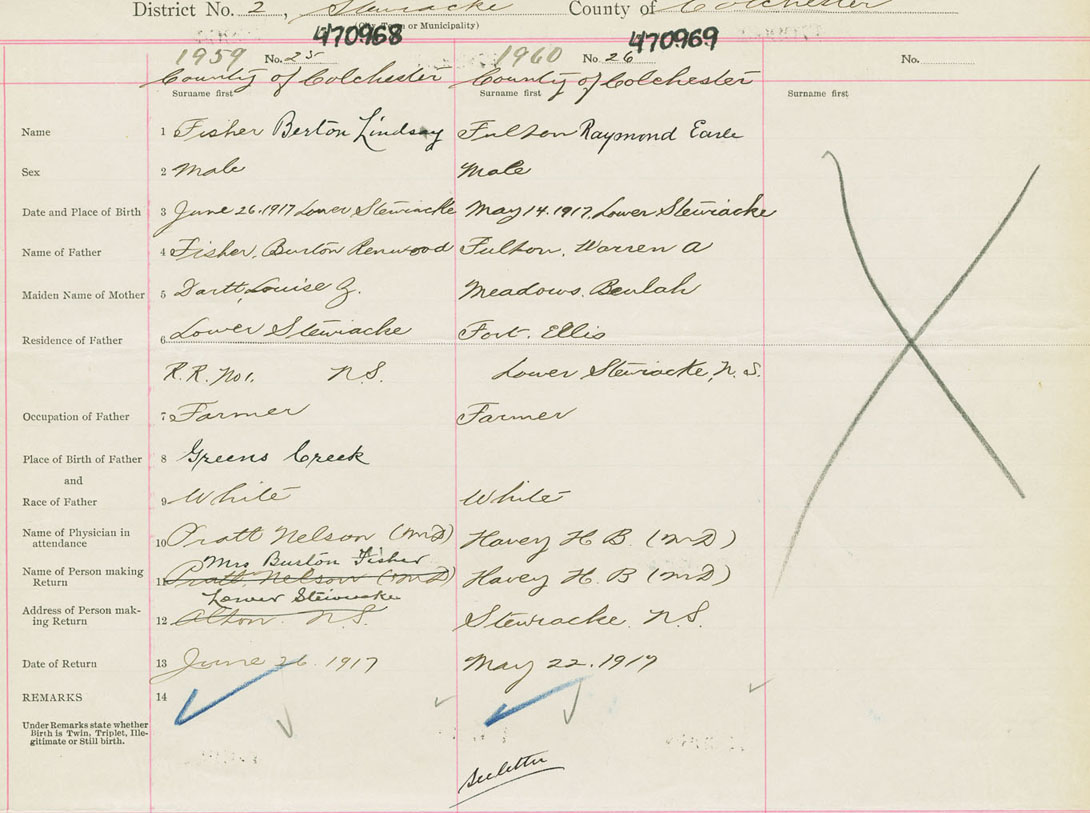 District No. 2, Stewiacke County of Colchester
(City, Town or Municipality)
470968 470969
1959 No. 25 1960 No. 26 No.
County of Colchester County of Colchester
Surname first Surname first Surname first
Name 1 Fisher Berton Lindsay Fulton Raymond Earle
Sex 2 Male Male
Date and Place of Birth 3 June 26.1917 Lower Stewiacke May 14.1917. Lower Stewiacke
Name of Father 4 Fisher, Burton Renwood Fulton, Warren A
Maiden Name of Mother 5 Dartt, Louise Z. Meadows. Beulah
Residence of Father 6 Lower Stewiacke Fort. Ellis
R.R. No1. N.S. Lower Stewiacke, N.S.
Occupation of Father 7 Farmer Farmer
Place of Birth of Father 8 Greens Creek
and
Race of Father 9 White White
Name of Physician in
attendance 10 Pratt Nelson (MD) Havey H B. (MD)
Mrs Burton Fisher
Name of Person making
Return 11 Pratt Nelson (MD) Havey H. B (MD)
Lower Stewiacke
Address of Person mak-
ing Return 12 Alton. N.S. Stewiacke. N.S.
Date of Return 13 June 26. 1917 May 22. 1917
REMARKS 14
Under Remarks state whether
Birth is Twin, Triplet, Ille-
gitimate or Still birth.
See letter